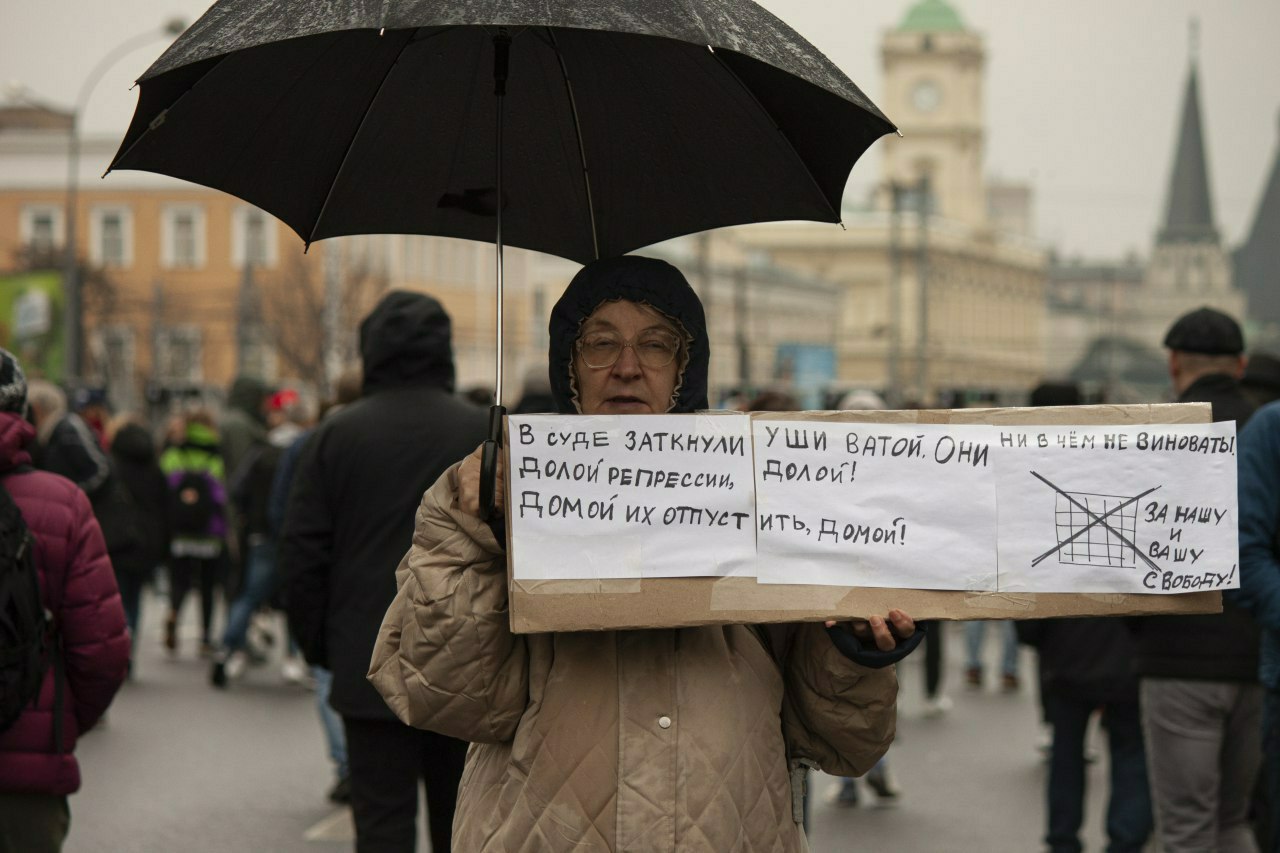 В СУДЕ ЗАТКНУЛИ УШИ ВАТОЙ. ОНИ НИ В ЧЁМ НЕ ВИНОВАТЫ!
ДОЛОЙ РЕПРЕССИИ, ДОЛОЙ!
ДОМОЙ ИХ ОТПУСТИТЬ, ДОМОЙ!
ЗА НАШУ
И
ВАШУ
СВОБОДУ!